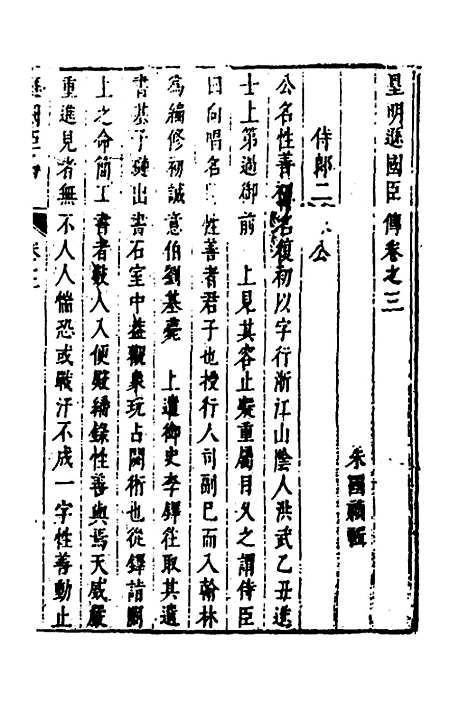 皇明遜國臣傳卷之三
朱國禎輯
侍郎二 公
公名性善初名復初以字行浙江山陰人洪武乙丑進
士上第過御前 上見其容止凝重屬目久之謂侍臣
曰向唱名 性善者君子也授行人司副已而入翰林
為編修初誠意伯劉基薨 上遣御史李鐸往取其遺
書基子璉出書石室中益觀象玩占閟術也從鐸請闕
上之命簡工書者數人入便殿繕錄性善與焉天威嚴
重進見者無不人人惴恐或戰汗不成一字性善動止